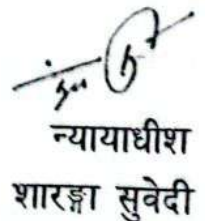 न्यायाधीश
शारङ्गा सुवेदी